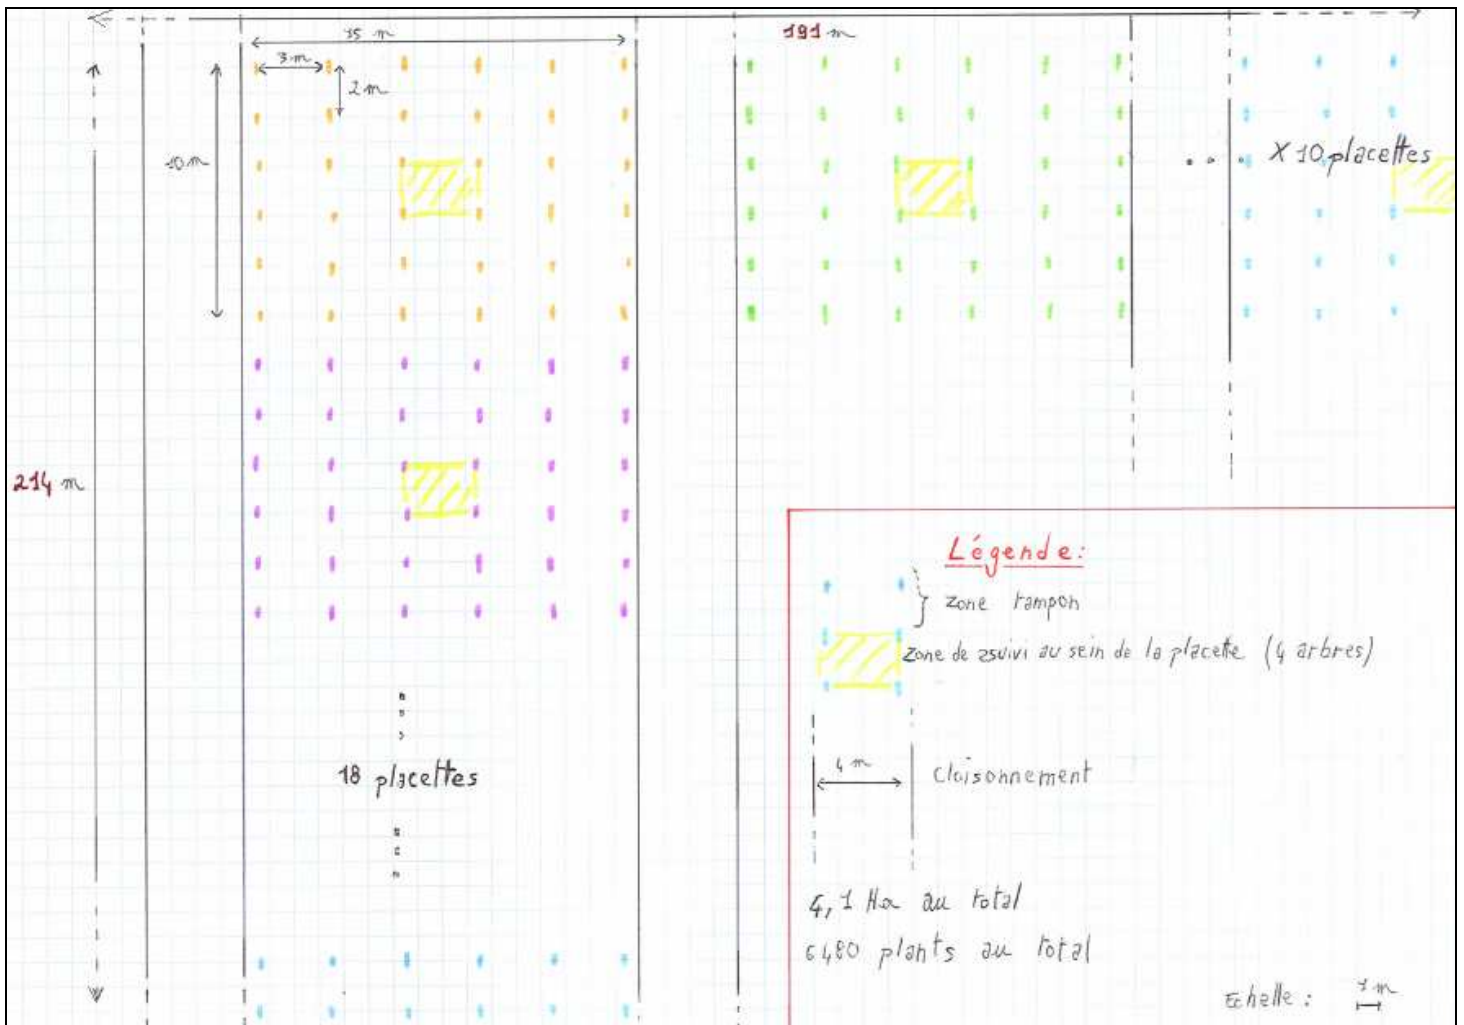 191 m
15 m
3 m
2 m
10 m
X 10 placettes
214 m
18 placettes
Légende:
zone tampon
zone de 25uivi au sein de la placette (4 arbres)
4 m
Cloisonnement
4,1 Ha au total
6480 plants au total
Echelle : 1 m